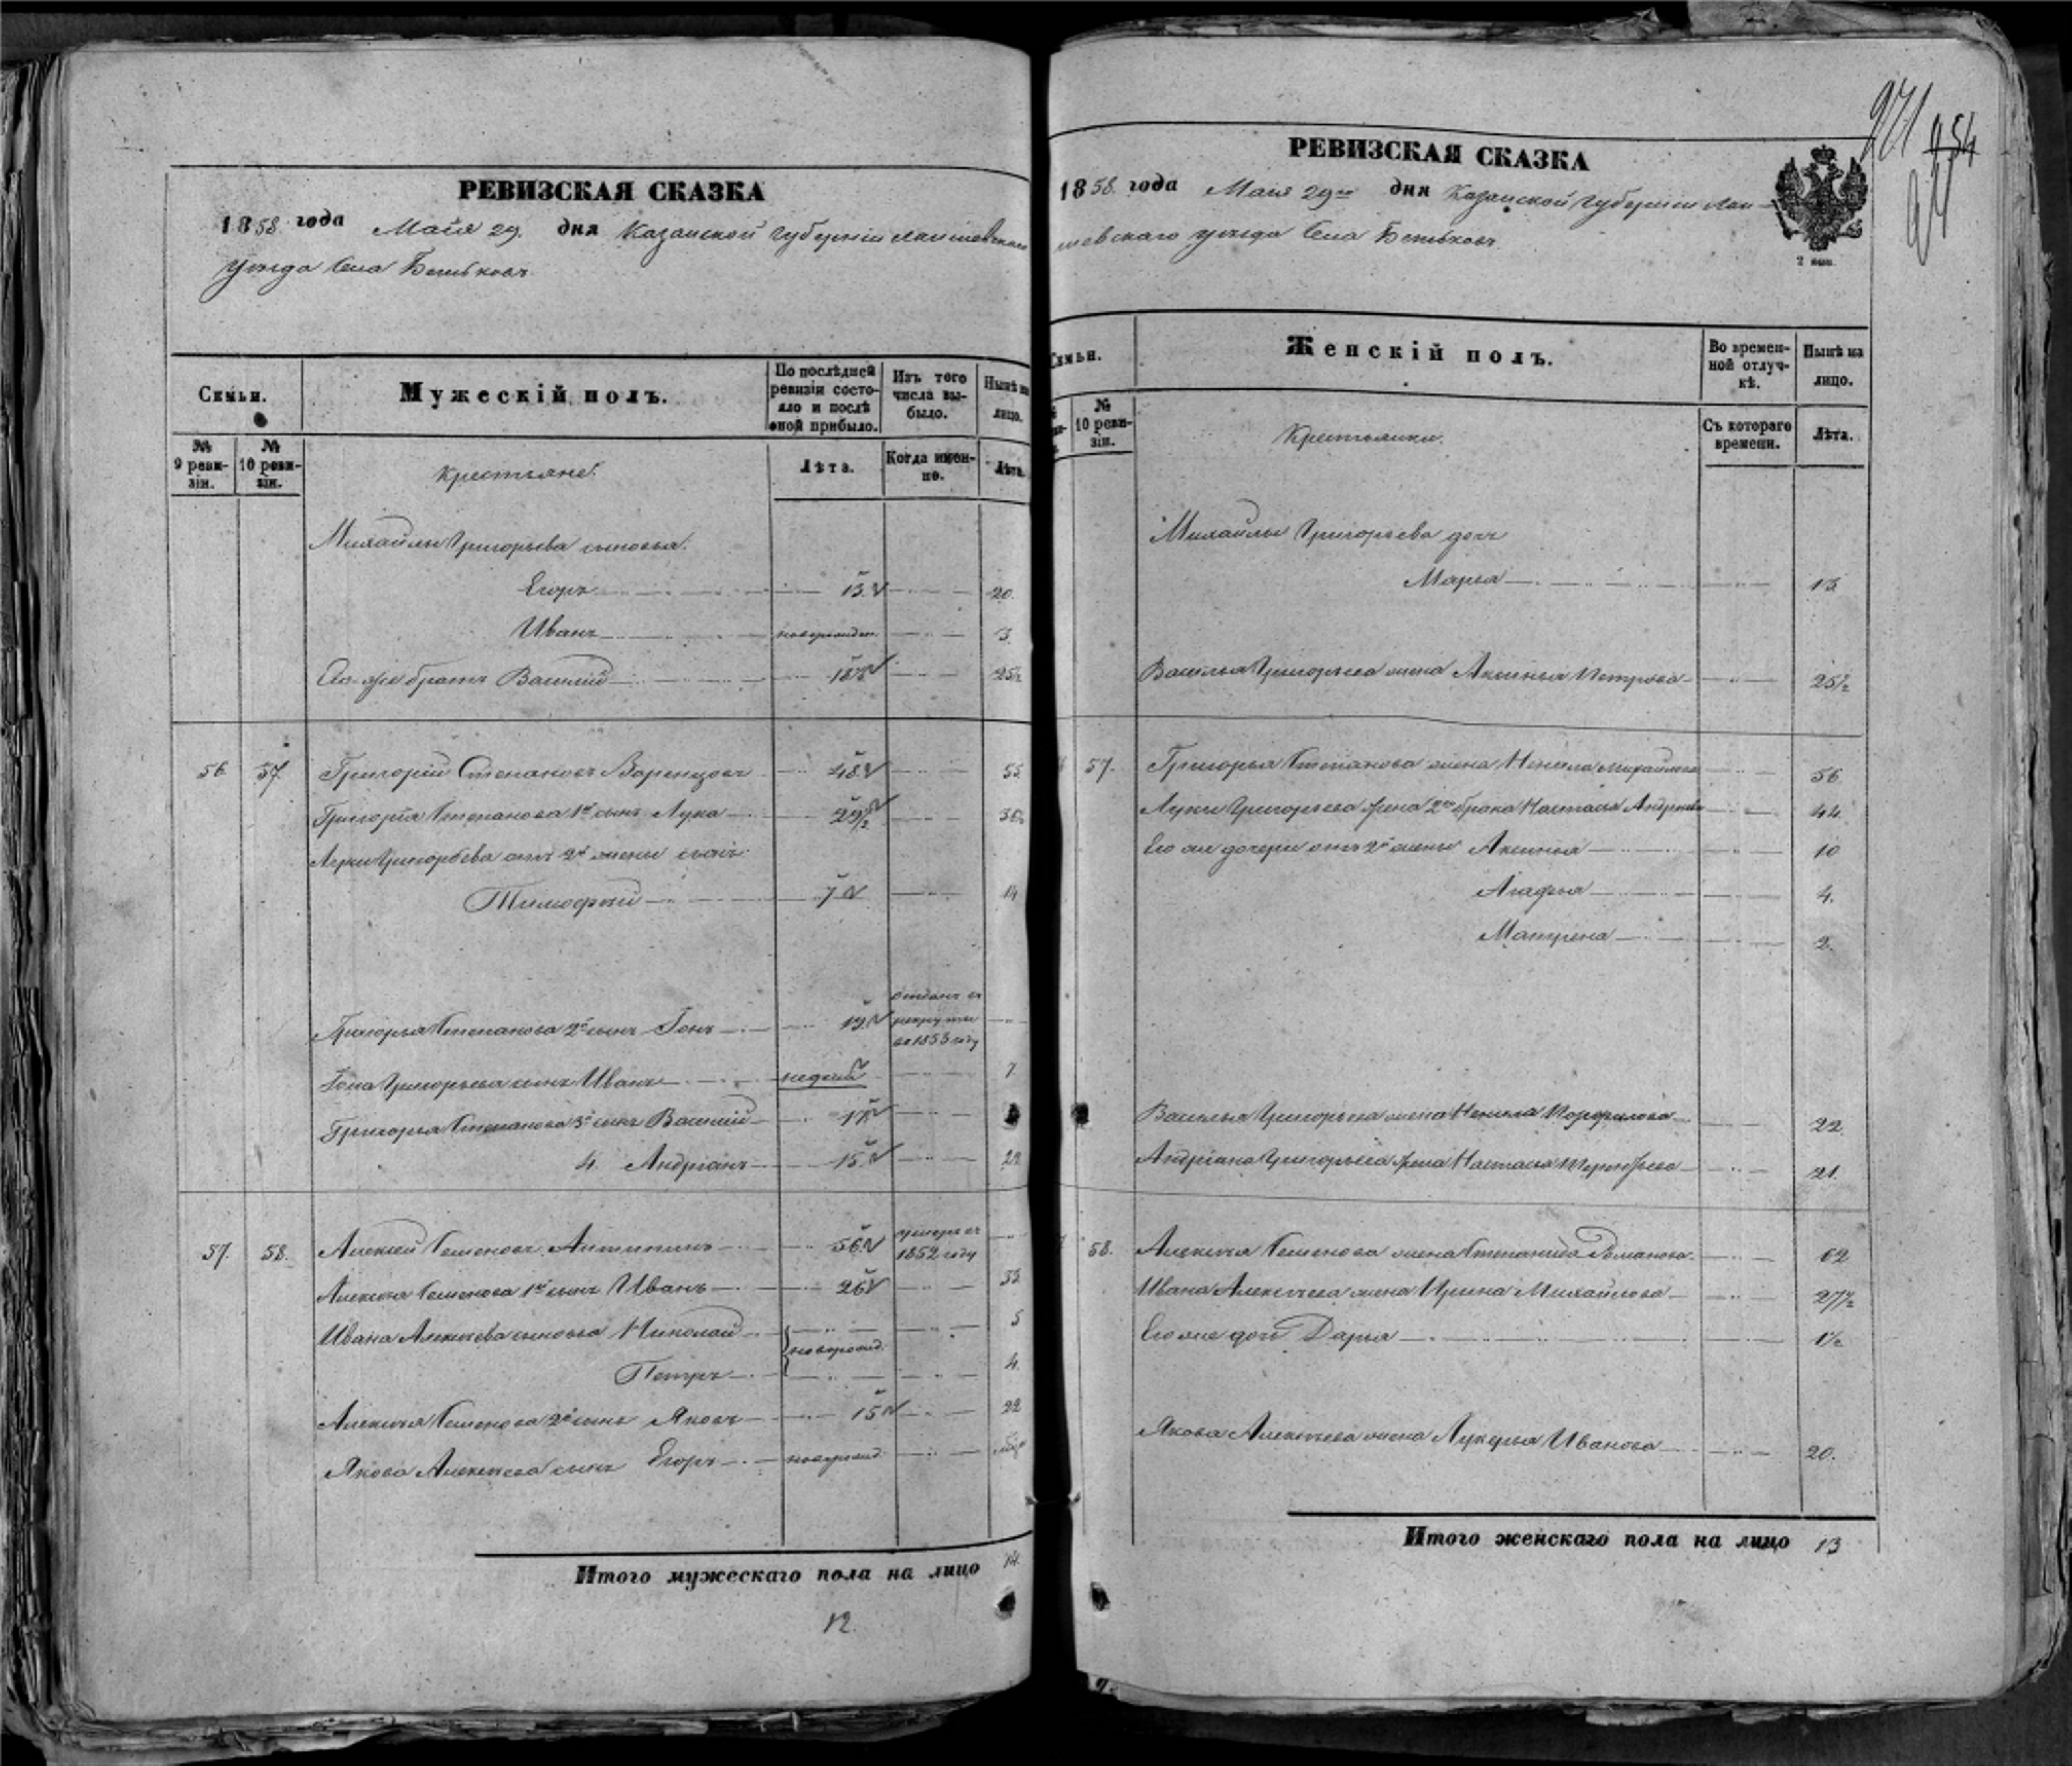 РЕВИЗСКАЯ СКАЗКА
1858 года Мая 29. дня Казанской губерніи Лаишевскаго
уѣзда Села
Семьи.
Мужескій полъ.
По послѣдней ревизіи состояло и послѣ оной прибыло.
Изъ того числа выбыло.
Нынѣ на лицо.
№ 9 ревизіи.
№ 10 ревизіи.
Крестьяне.
Лѣта.
Когда именно.
Лѣта.
Михайлы Григорьева сыновья.
Егоръ 13 20.
Иванъ новорожден. 3
Его же братъ Василий 25½
56 57. Григорій Степановъ 48 55
Григорія Степанова 1й сынъ Лука 29½ 36½
Луки Григорьева отъ 2й жены сынъ
Тимофей 7 14
Григорья Степанова 2й сынъ Іонъ отданъ въ рекруты въ 1853 году
Іона Григорьева сынъ Иванъ 7.
Григорья Степанова 3й сынъ Василій 17
4. Андріанъ 15 22
57. 58. Алексей Семеновъ Антипинъ 56 умеръ въ 1852 году
Алексея Семенова 1й сынъ Иванъ 26 33
Ивана Алексеева сыновья Николай новорожд. 5
Петръ 4.
Алексея Семенова 2й сынъ Яковъ 15 22
Якова Алексеева сынъ Егоръ новорожд.
Итого мужескаго пола на лицо
12
РЕВИЗСКАЯ СКАЗКА
1858 года Мая 29го дня Казанской Губерніи Лаи-
шевскаго уѣзда Села
Семьи.
Женскій полъ.
Во временной отлучкѣ.
Нынѣ на лицо.
№ 10 ревизіи.
Крестьянки.
Съ котораго времени.
Лѣта.
Михайлы Григорьева дочь
Марья 13
Василья Григорьева жена Аксинья Петрова 25½
57. Григорья Степанова жена Ненила Михайлова 56
Луки Григорьева жена 2го брака Настасья Андреева 44.
Его же дочери отъ 2й жены Аксинья 10
Агафья 4.
Матрена 2.
Василья Григорьева жена Ненила 22.
Андріана Григорьева жена Настасья 21.
58. Алексея Семенова жена Степанида Романова 62
Ивана Алексеева жена Ирина Михайлова 27½
Его же дочь Дарья 1½
Якова Алексеева жена Лукерья Иванова 20.
Итого женскаго пола на лицо 13